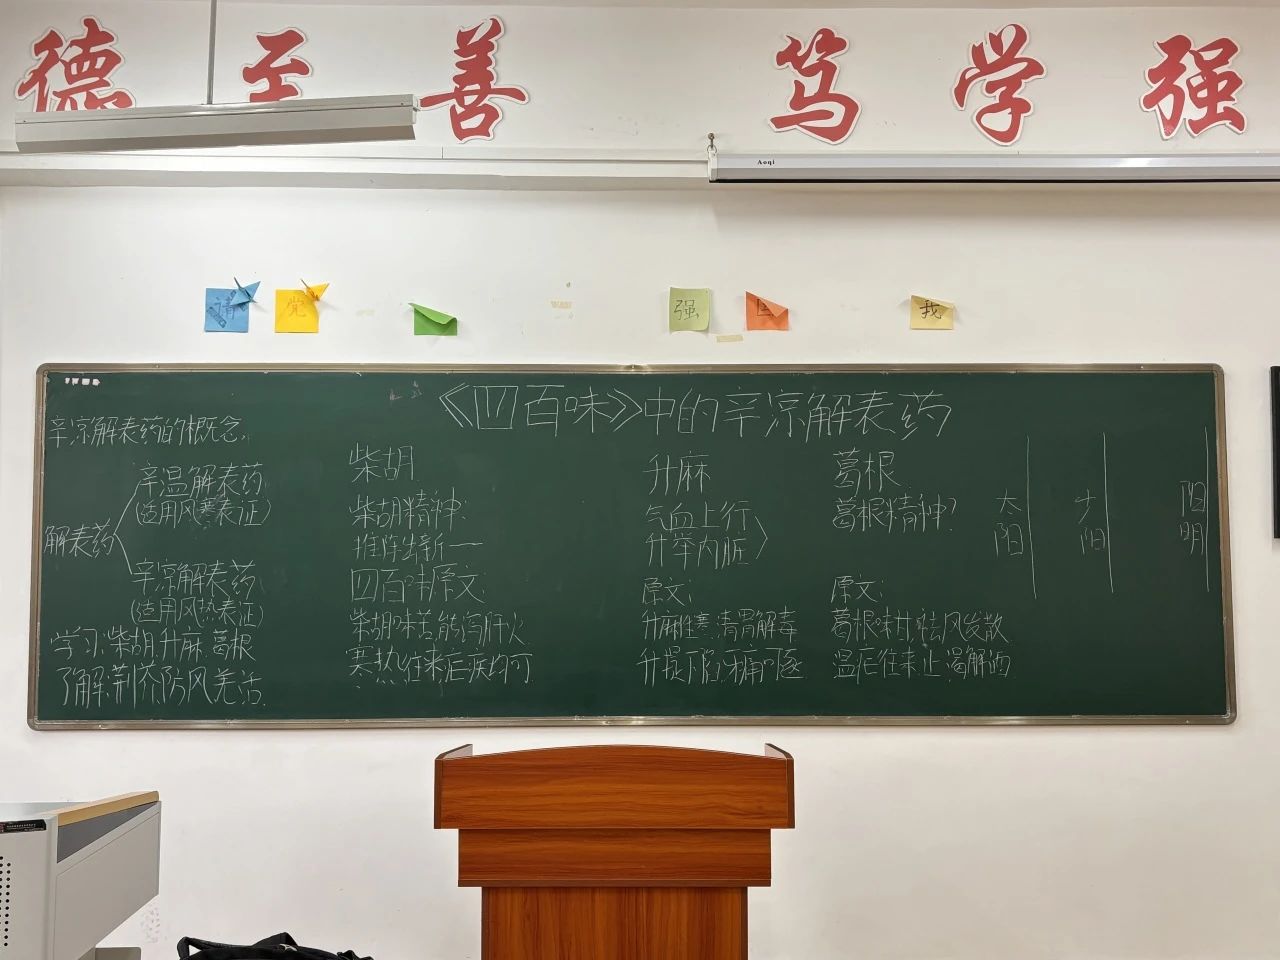 德 至 善 笃 学 强
Aoqi
请 党 强 国 我
《四百味》中的辛凉解表药
辛凉解表药的概念
辛温解表药
(适用风寒表证)
解表药
辛凉解表药
(适用风热表证)
学习:柴胡.升麻.葛根
了解:荆芥.防风.羌活.
柴胡
柴胡精神:
推陈致新——
四百味原文:
柴胡味苦.能泻肝火
寒热往来.疟疾均可
升麻
气血上行
升举内脏
原文:
升麻性寒.清胃解毒
升提下陷.牙痛可逐
葛根
葛根精神?
原文:
葛根味甘.祛风发散
温疟往来.止渴解酒
太阳
少阳
阳明